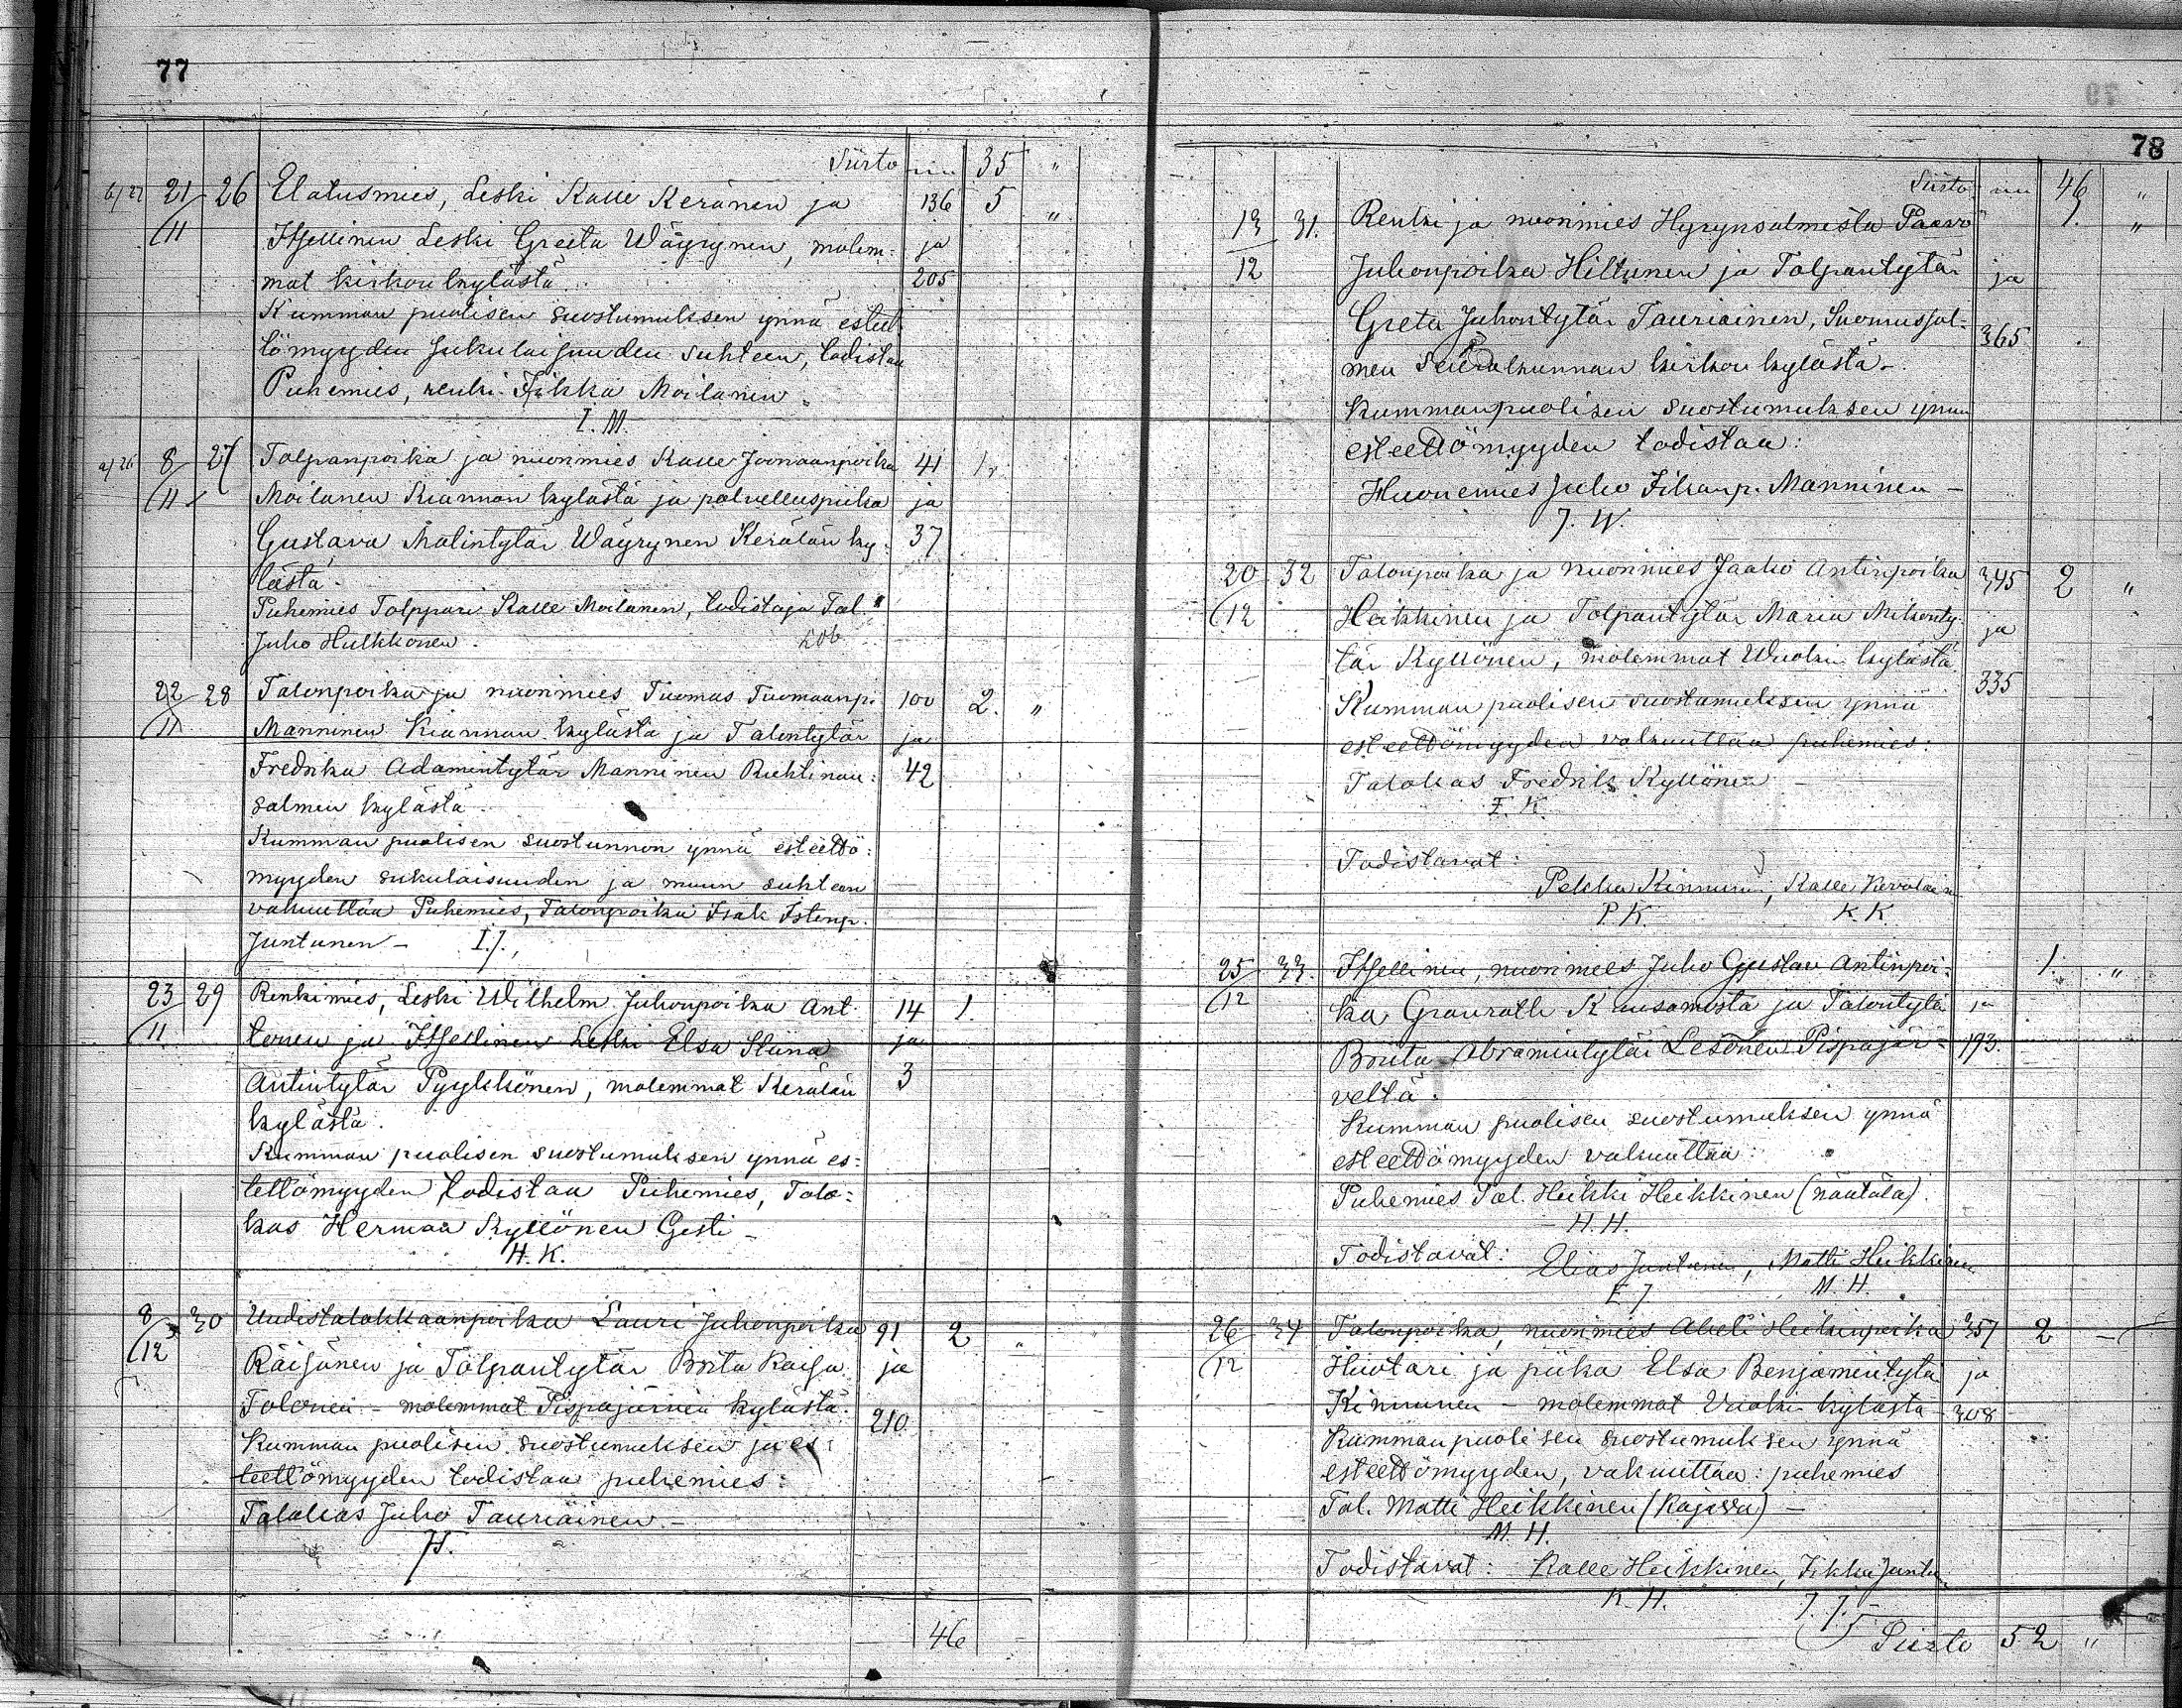 77
Siirto mk 35 "
b/27 21/11 26 Elatusmies, Leski Kalle Keränen ja 136 5 "
Itsellinen Leski Greeta Wäyrynen, molem- ja
mat kirkon kylästä. 205
Kumman puolisen suostumuksen ynnä esteet-
tömyyden sukulaisuuden suhteen, todistaa
Puhemies, renki Fikka Moilanen.
I. M.
a/26 8/11 27 Tolpanpoika ja nuorimies Kalle Joonaanpoika 41 1.
Moilanen Kiannan kylästä ja palvelluspiika ja
Gustava Matintytär Wäyrynen Kerälän ky- 37
lästä.
Puhemies Tolppari Kalle Moilanen, todistaja Tal.
Juho Hulkkonen.
22/11 28 Talonpoika ja nuorimies Tuomas Tuomaanp. 100 2. "
Manninen Kiannan kylästä ja Talontytär ja
Fredrika Adamintytär Manninen Ruhtinan- 42
salmen kylästä.
Kumman puolisen suostunnon ynnä esteettö-
myyden sukulaisuuden ja muun suhteen
vakuuttaa Puhemies, Talonpoika Isak
Juntunen - I.J.
23/11 29 Renkimies, Leski Wilhelm Juhonpoika Ant- 14 1.
tonen ja Itsellinen Leski Elsa Stiina ja
Antintytär Pyykkönen, molemmat Kerälän 3
kylästä.
Kumman puolisen suostumuksen ynnä es-
tettömyyden todistaa Puhemies, Talo-
kas Herman Kyllönen Gesti -
H. K.
8/12 30 Uudistalokkaanpoika Lauri Juhonpoika 91 2 "
Räisänen ja Tolpantytär Brita Kaisa ja
Tolonen - molemmat Pispajärven kylästä. 210
Kumman puolisen suostumuksen ja es-
teettömyyden todistaa puhemies:
Talokas Juho Tauriainen -
46
78
Siirto mk 46 "
13/12 31. Renki ja nuorimies Hyrynsalmesta Paavo 1. "
Juhonpoika Hiltunen ja Tolpantytär ja
Greta Juhontytär Tauriainen, Suomussal- 365
men Seurakunnan kirkon kylästä -
Kummanpuolisen suostumuksen ynnä
esteettömyyden todistaa:
Huonemies Juho Manninen -
J. W.
20/12 32 Talonpoika ja nuorimies Jaako Antinpoika 345 2 "
Heikkinen ja Tolpantytär Maria Mikonty- ja
tär Kyllönen, molemmat Wuokin kylästä. 335
Kumman puolisen suostumuksen ynnä
esteettömyyden vakuuttaa puhemies:
Talokas Fredrik Kyllönen -
F. K.
Todistavat:
Pekka Kinnunen, Kalle
P. K. K. K.
25/12 33. Itsellinen, nuorimies Juho Gustav Antinpoi- 1. "
ka Granroth Kuusamosta ja Talontytä ja
Briita Abramintytär Lesonen Pispajär- 193.
veltä.
Kumman puolisen suostumuksen ynnä
esteettömyyden vakuuttaa:
Puhemies Tal. Heikki Heikkinen
H. H.
Todistavat: Elias Juntunen, Matti Heikkinen
E J M. H.
26/12 34 Talonpoika, nuorimies Abeli Heikinpoika 357 2 -
Huotari ja piika Elsa Benjamintytä ja
Kinnunen - molemmat Vuokin kylästä - 308
Kummanpuolisen suostumuksen ynnä
esteettömyyden, vakuuttaa: puhemies
Tal. Matti Heikkinen -
M. H.
Todistavat: Kalle Heikkinen,
K. H. J. J.
Siirto 52 "